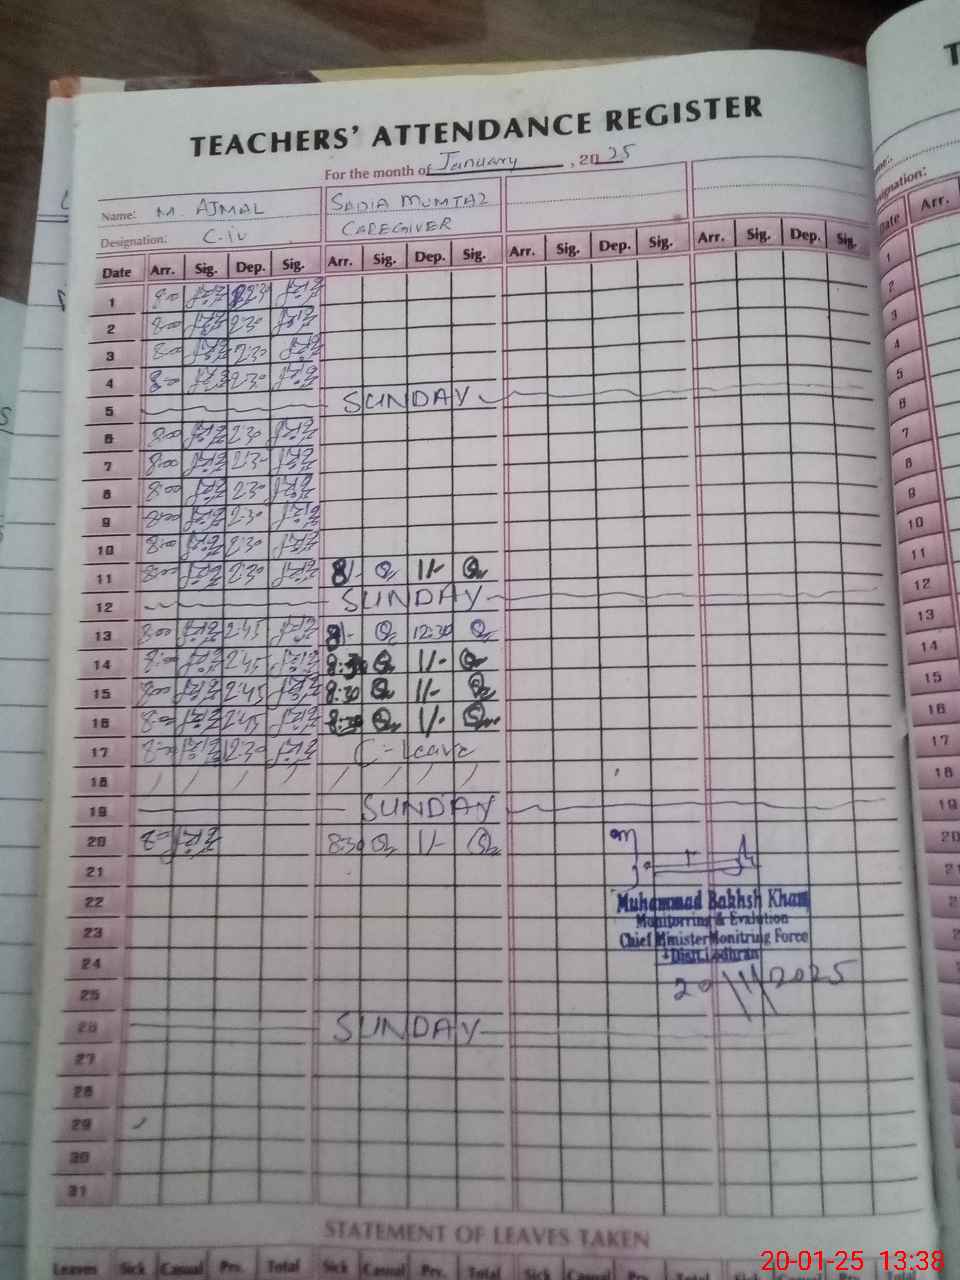 TEACHERS' ATTENDANCE REGISTER
For the month of January, 2025
Name: M. AJMAL SADIA MUMTAZ
Designation: C-iv CAREGIVER
Date Arr. Sig. Dep. Sig. Arr. Sig. Dep. Sig. Arr. Sig. Dep. Sig. Arr. Sig. Dep. Sig.
1 8:00
2 8:00 2:30
3 8:00 2:30
4 8:00 2:30
5 SUNDAY
6 8:00 2:30
7 8:00 2:30
8 8:00 2:30
9 8:00 2:30
10 8:00 2:30
11 8:00 2:30 8/- 1/-
12 SUNDAY
13 8:00 2:45 8/- 12:30
14 8:00 2:45 8:30 1/-
15 8:00 2:45 8:30 1/-
16 8:00 2:45 8:30 1/-
17 8:00 12:30 C-Leave
18 / / / / / / / /
19 SUNDAY
20 8:00 8:30 1/-
21
22
23
24
25
26 SUNDAY
27
28
29
30
31
Muhammad Bakhsh Kham
Monitorring & Evalution
Chief Minister Monitring Force
Distt Lodhran
20/1/2025
STATEMENT OF LEAVES TAKEN
Leaves Sick Casual Prv. Total Sick Casual Prv. Total Sick Casual Prv. Total Sick Casual Prv. Total
Designation:
Date Arr.
1
2
3
4
5
6
7
8
9
10
11
12
13
14
15
16
17
18
19
20
20-01-25 13:38